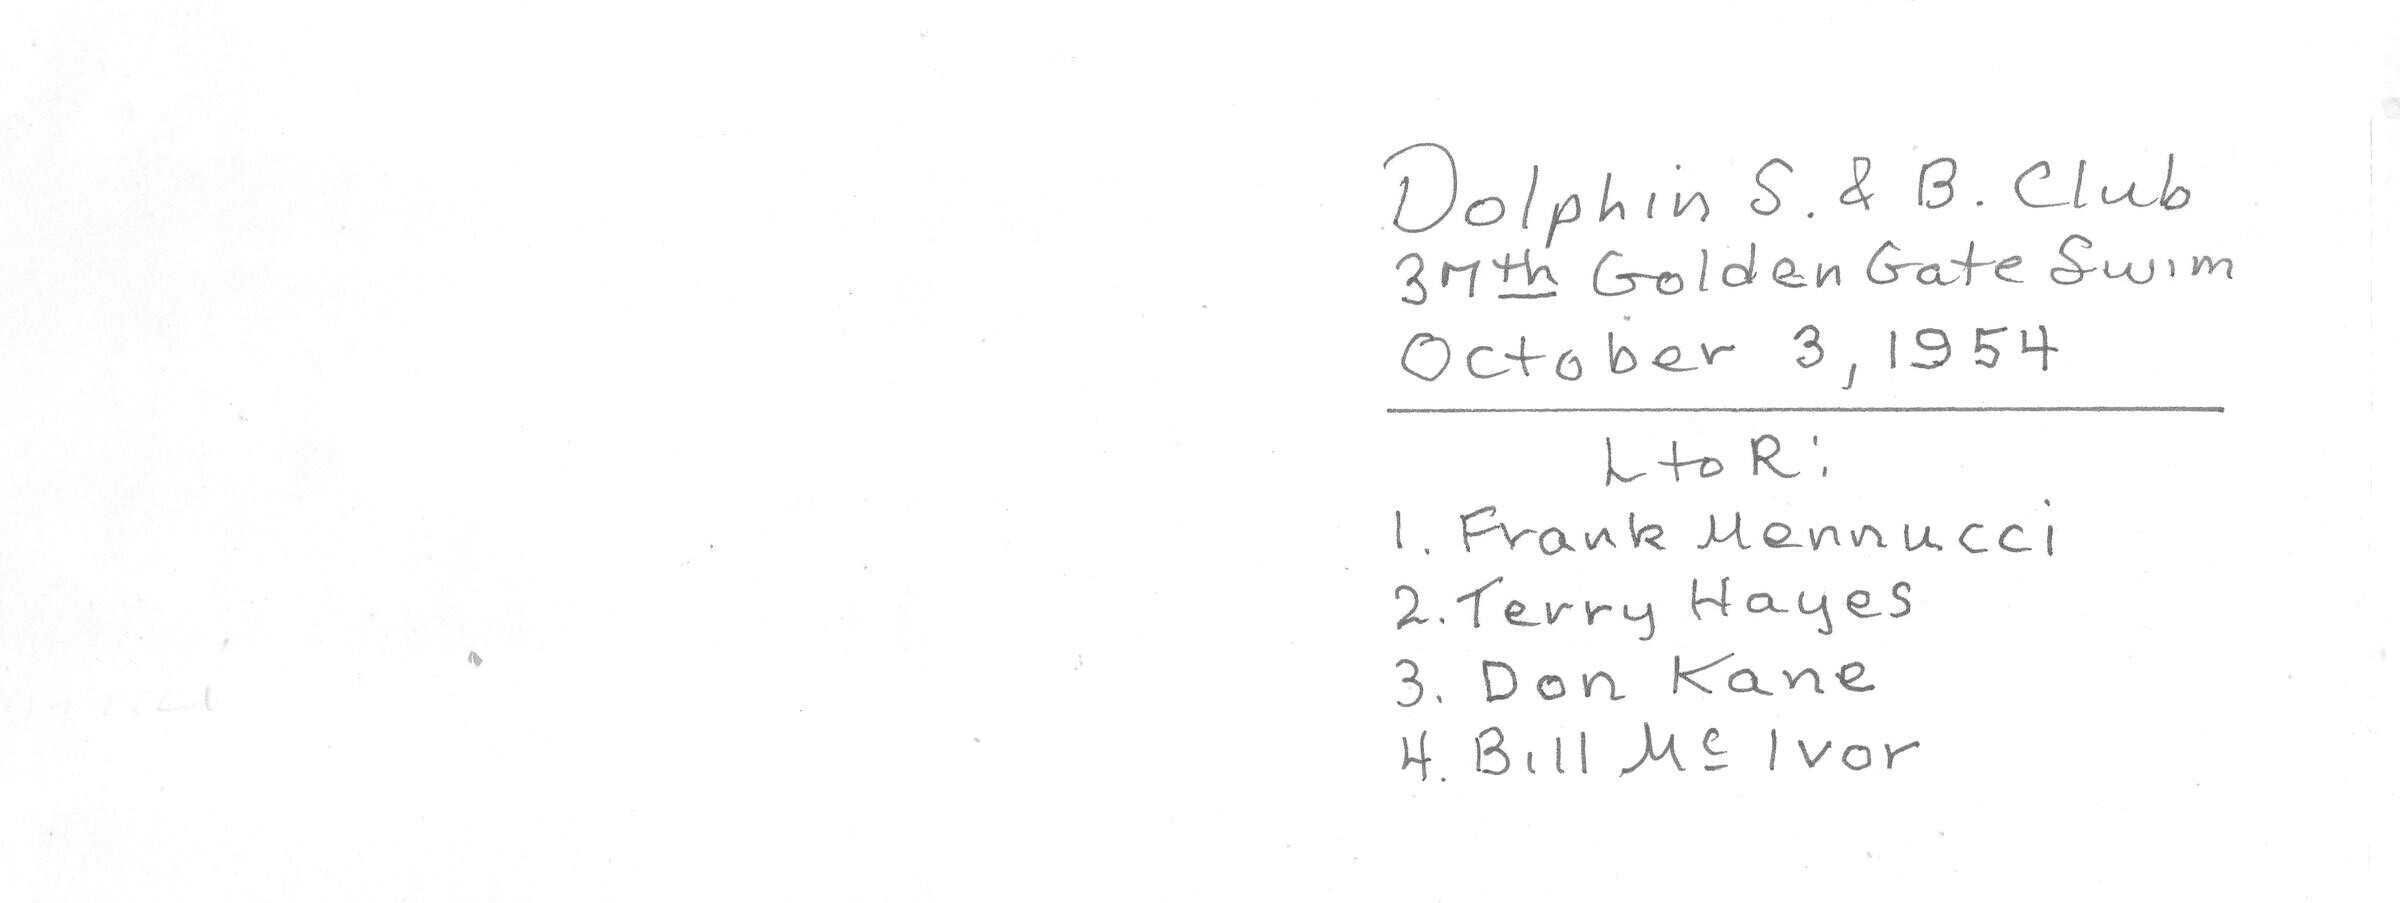 Dolphin S. & B. Club
37th Golden Gate Swim
October 3, 1954
L to R:
1. Frank Mennucci
2. Terry Hayes
3. Don Kane
4. Bill Mc Ivor